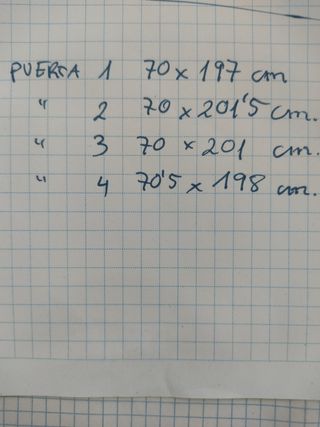 PUERTA 1 70 x 197 cm
" 2 70 x 201'5 cm.
" 3 70 x 201 cm.
" 4 70'5 x 198 cm.